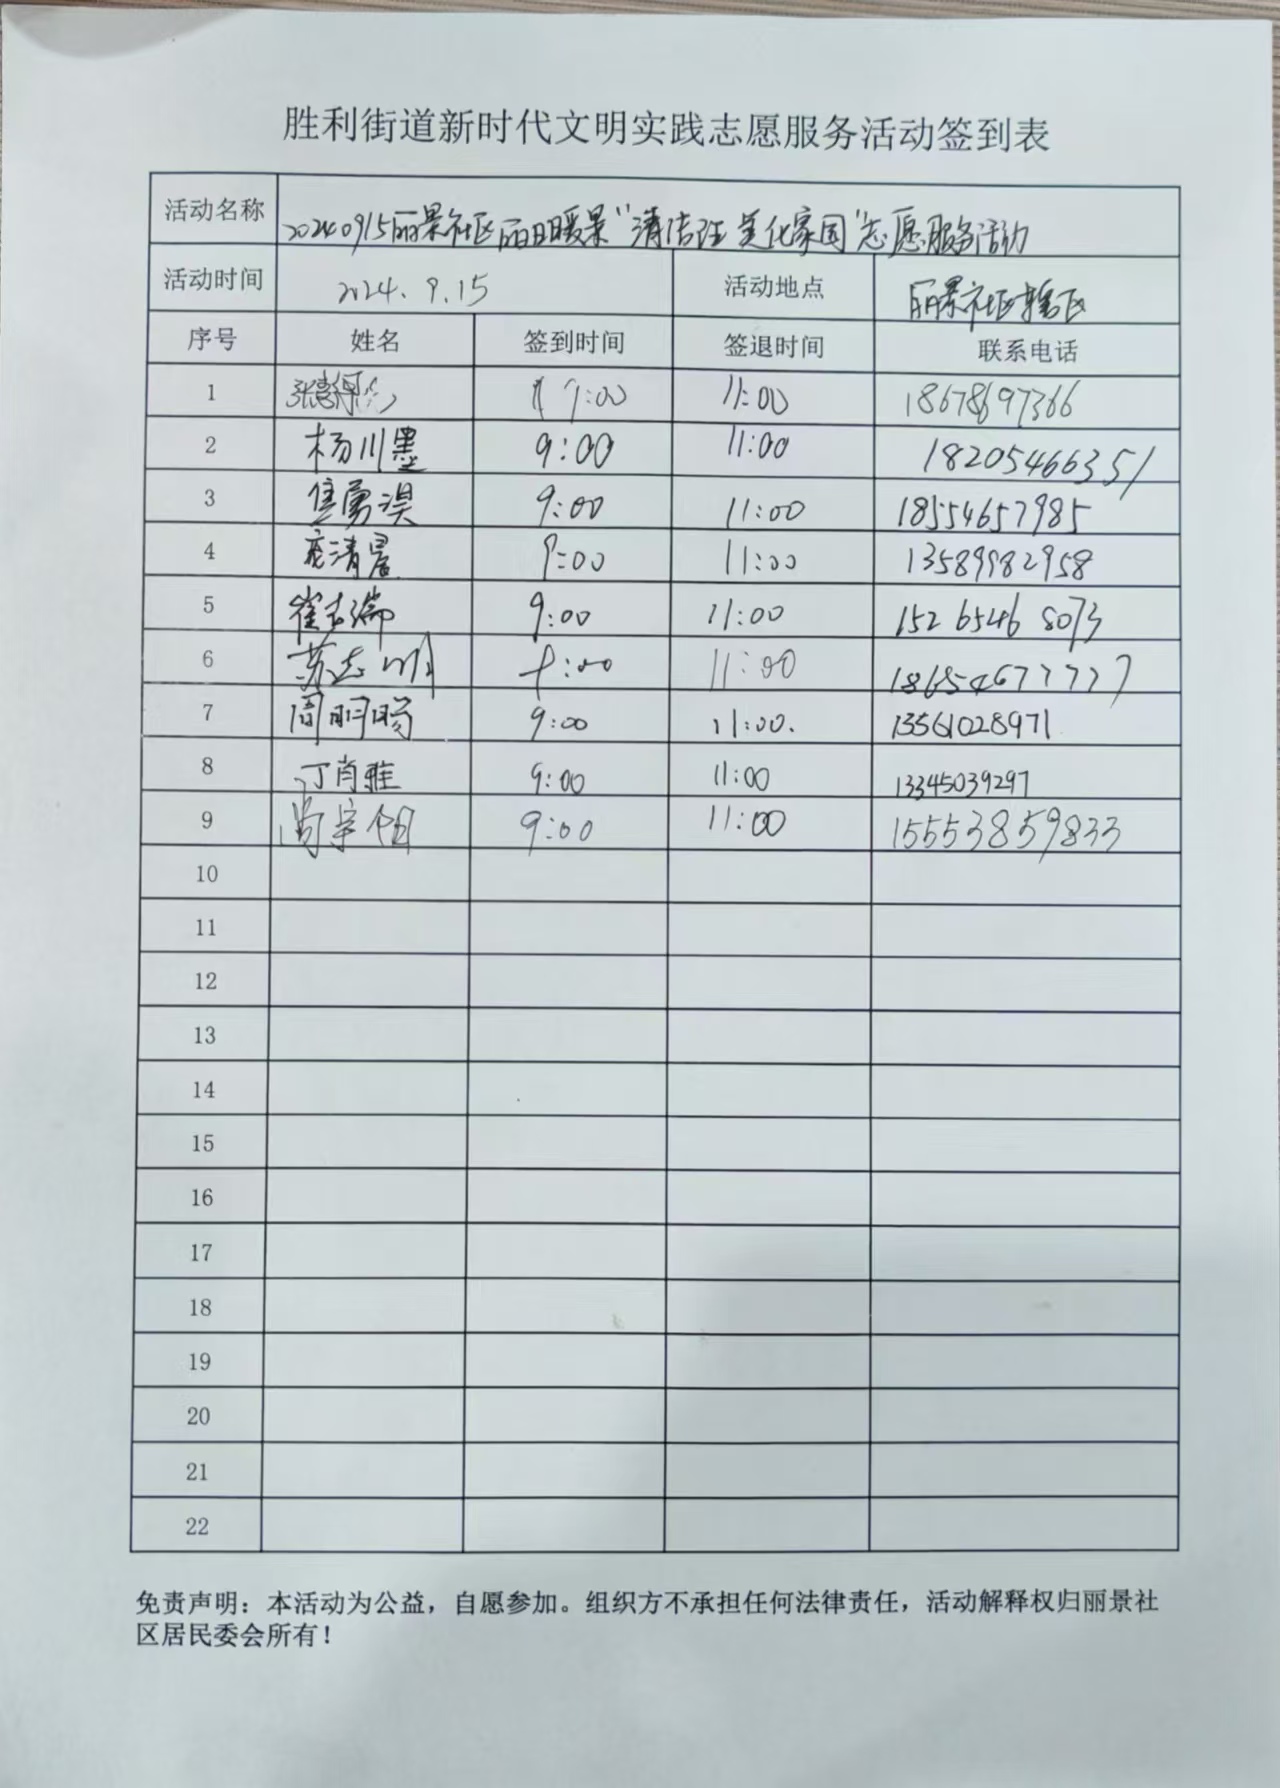 胜利街道新时代文明实践志愿服务活动签到表
活动名称 20240915丽景社区丽日暖景“清洁 美化家园”志愿服务活动
活动时间 2024.9.15 活动地点 丽景社区辖区
序号 姓名 签到时间 签退时间 联系电话
1 9:00 11:00 18678697366
2 杨川墨 9:00 11:00 18205466351
3 9:00 11:00 18554657985
4 庞清晨 9:00 11:00 13589982958
5 崔志瑞 9:00 11:00 15265468073
6 苏志明 9:00 11:00 18654677777
7 周明旸 9:00 11:00. 13561028971
8 丁肖雅 9:00 11:00 13345039297
9 9:00 11:00 15553859833
10
11
12
13
14
15
16
17
18
19
20
21
22
免责声明：本活动为公益，自愿参加。组织方不承担任何法律责任，活动解释权归丽景社
区居民委会所有！